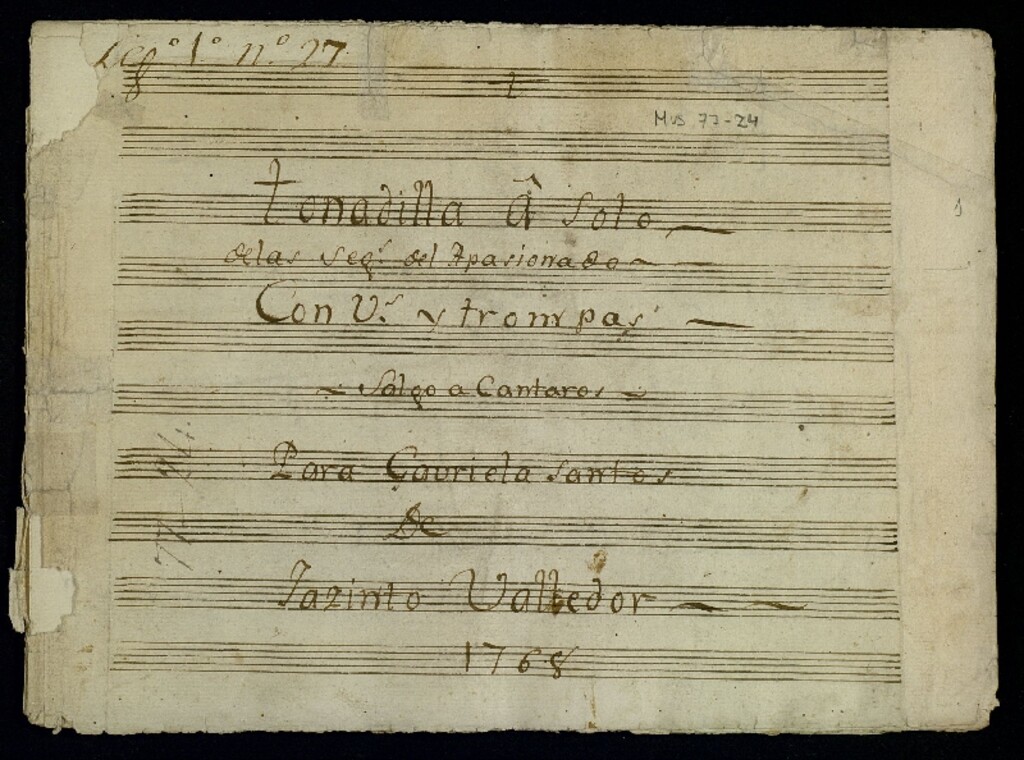 Leg.º 1.º n.º 27
Mus 77-24
1
tonadilla â solo
delas Seg.s del Apasionado
Con V.s y trompas
Salgo a Cantaros
Para Gavriela santos
De
Jazinto Valledor
1768